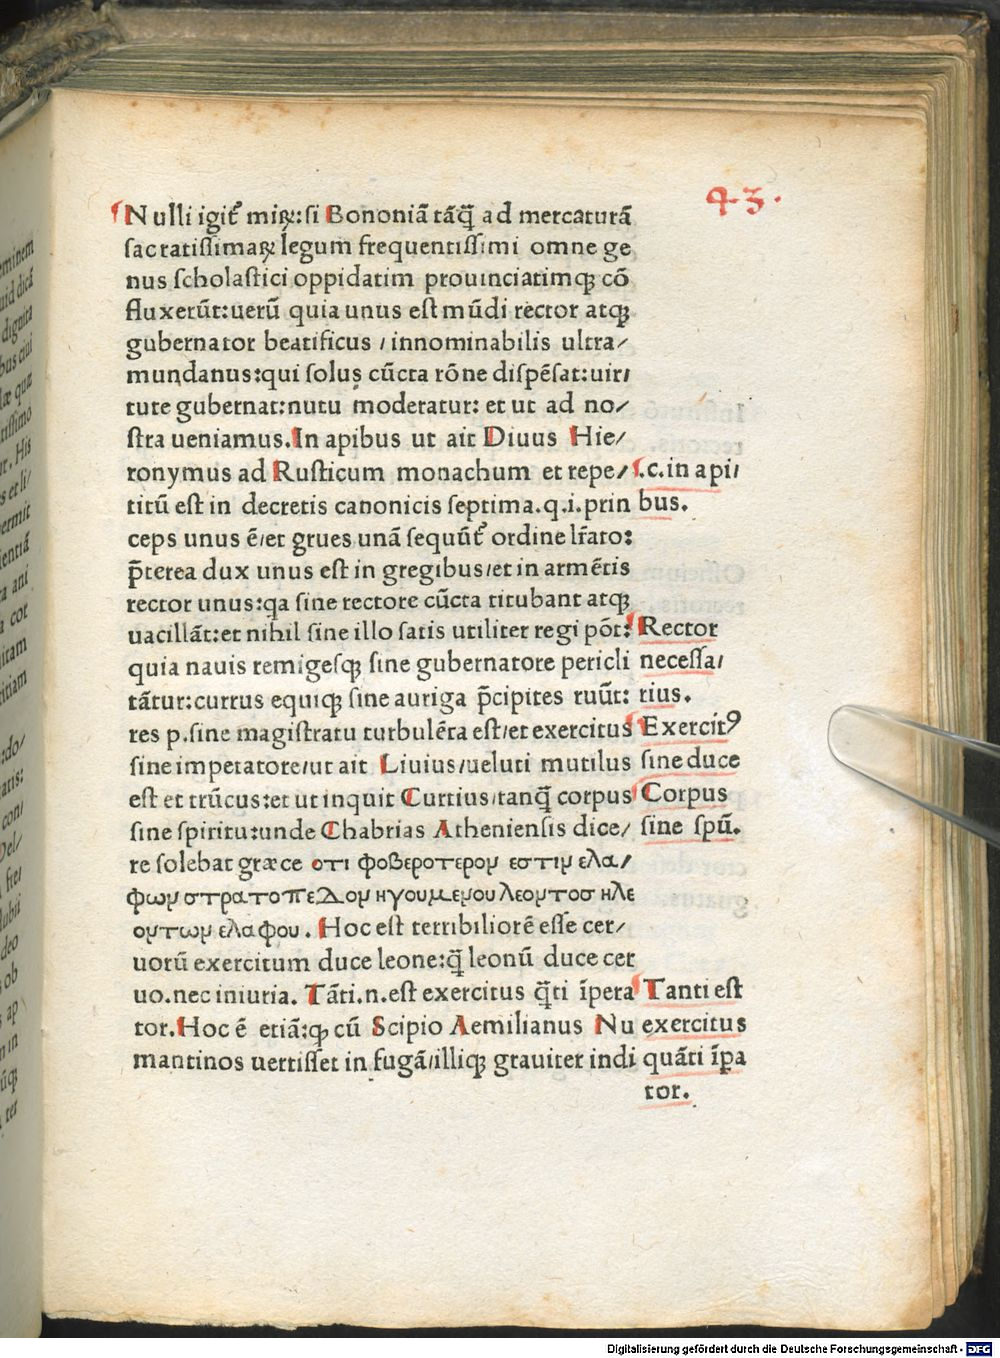 43.
Nulli igit᷑ miꝝ:si Bononiā tāꝗ̄ ad mercaturā
sacratissimaꝝ legum frequentissimi omne ge
nus scholastici oppidatim prouinciatimꝙ cō
fluxerūt:uerū quia unus est mūdi rector atꝙ
gubernator beatificus / innominabilis ultra/
mundanus:qui solus cūcta rōne dispēsat:uir/
tute gubernat:nutu moderatur: et ut ad no/
stra ueniamus.In apibus ut ait Diuus Hie/
ronymus ad Rusticum monachum et repe/
titū est in decretis canonicis septima.q.i.prin
ceps unus ē/et grues unā sequūt᷑ ordine lr̄ato:
p̄terea dux unus est in gregibus/et in armētis
rector unus:qa sine rectore cūcta titubant atꝙ
uacillāt:et nihil sine illo satis utiliter regi pōt:
quia nauis remigesꝙ sine gubernatore pericli
tātur:currus equiꝙ sine auriga p̄cipites ruūt:
res p.sine magistratu turbulēta est/et exercitus
sine imperatore/ut ait Liuius/ueluti mutilus
est et trūcus:et ut inquit Curtius/tanꝗ̄ corpus
sine spiritu:unde Chabrias Atheniensis dice/
re solebat græce οτι φοβεροτερον εστιν ελα/
φων στρατοπεδον ηγουμενου λεοντοσ ηλε
οντων ελαφου. Hoc est terribiliorē esse cer/
uorū exercitum duce leone:ꝗ̄ leonū duce cer
uo.nec iniuria. Tāti.n.est exercitus ꝗ̄ti īpera
tor.Hoc ē etiā:ꝙ cū Scipio Aemilianus Nu
mantinos uertisset in fugā/illiꝙ grauiter indi
.c.in api/
bus.
Rector
necessa/
rius.
Exercitꝰ
sine duce
Corpus
sine spū.
Tanti est
exercitus
quāti īpa
tor.
Digitalisierung gefördert durch die Deutsche Forschungsgemeinschaft - DFG